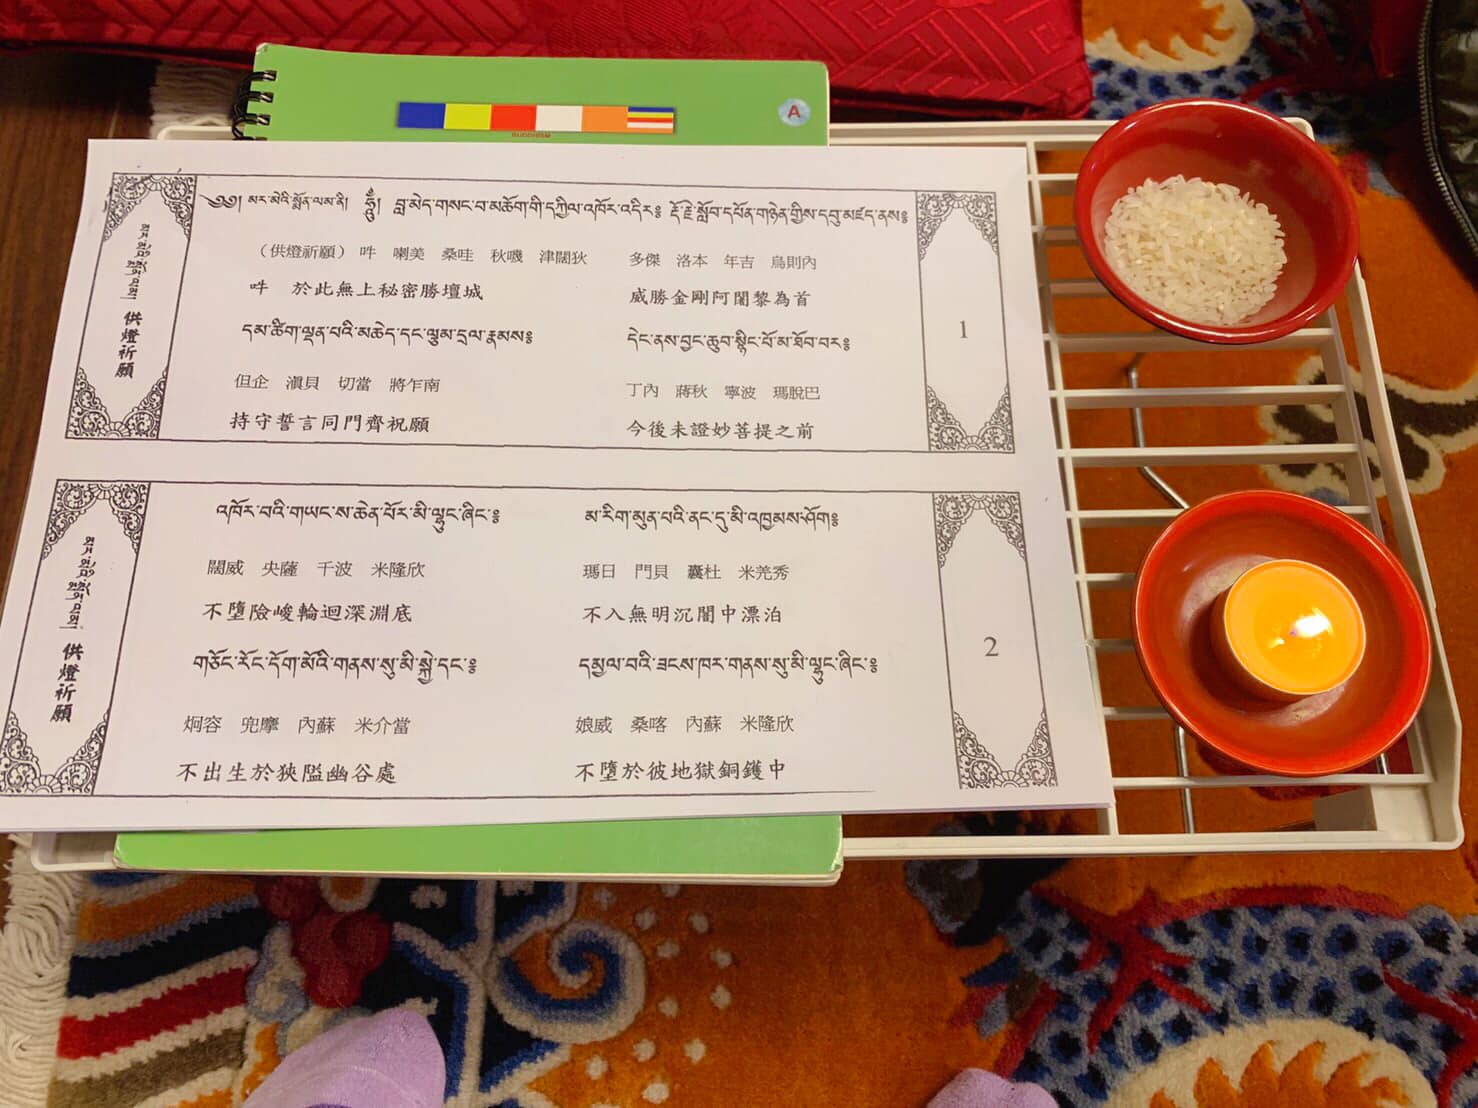 BUDDHISM
A
༄༅། མར་མེའི་སྨོན་ལམ་ནི། ཧཱུྃ། བླ་མེད་གསང་བ་མཆོག་གི་དཀྱིལ་འཁོར་འདིར༔ རྡོ་རྗེ་སློབ་དཔོན་གཉེན་གྱིས་དབུ་མཛད་ནས༔
（供燈祈願） 吽 喇美 桑哇 秋嘰 津闊狄 多傑 洛本 年吉 烏則內
吽 於此無上秘密勝壇城 威勝金剛阿闍黎為首
དམ་ཚིག་ལྡན་པའི་མཆེད་དང་ལྕམ་དྲལ་རྣམས༔ དེང་ནས་བྱང་ཆུབ་སྙིང་པོ་མ་ཐོབ་བར༔
但企 滇貝 切當 將乍南 丁內 蔣秋 寧波 瑪脫巴
持守誓言同門齊祝願 今後未證妙菩提之前
མར་མེའི་སྨོན་ལམ། 供燈祈願
1
འཁོར་བའི་གཡང་ས་ཆེན་པོར་མི་ལྷུང་ཞིང་༔ མ་རིག་མུན་པའི་ནང་དུ་མི་འཁྱམས་ཤོག༔
闊威 央薩 千波 米隆欣 瑪日 門貝 囊杜 米羌秀
不墮險峻輪迴深淵底 不入無明沉闇中漂泊
གཅོང་རོང་དོག་མོའི་གནས་སུ་མི་སྐྱེ་དང་༔ དམྱལ་བའི་ཟངས་ཁར་གནས་སུ་མི་ལྷུང་ཞིང་༔
炯容 兜摩 內蘇 米介當 娘威 桑喀 內蘇 米隆欣
不出生於狹隘幽谷處 不墮於彼地獄銅鑊中
མར་མེའི་སྨོན་ལམ། 供燈祈願
2